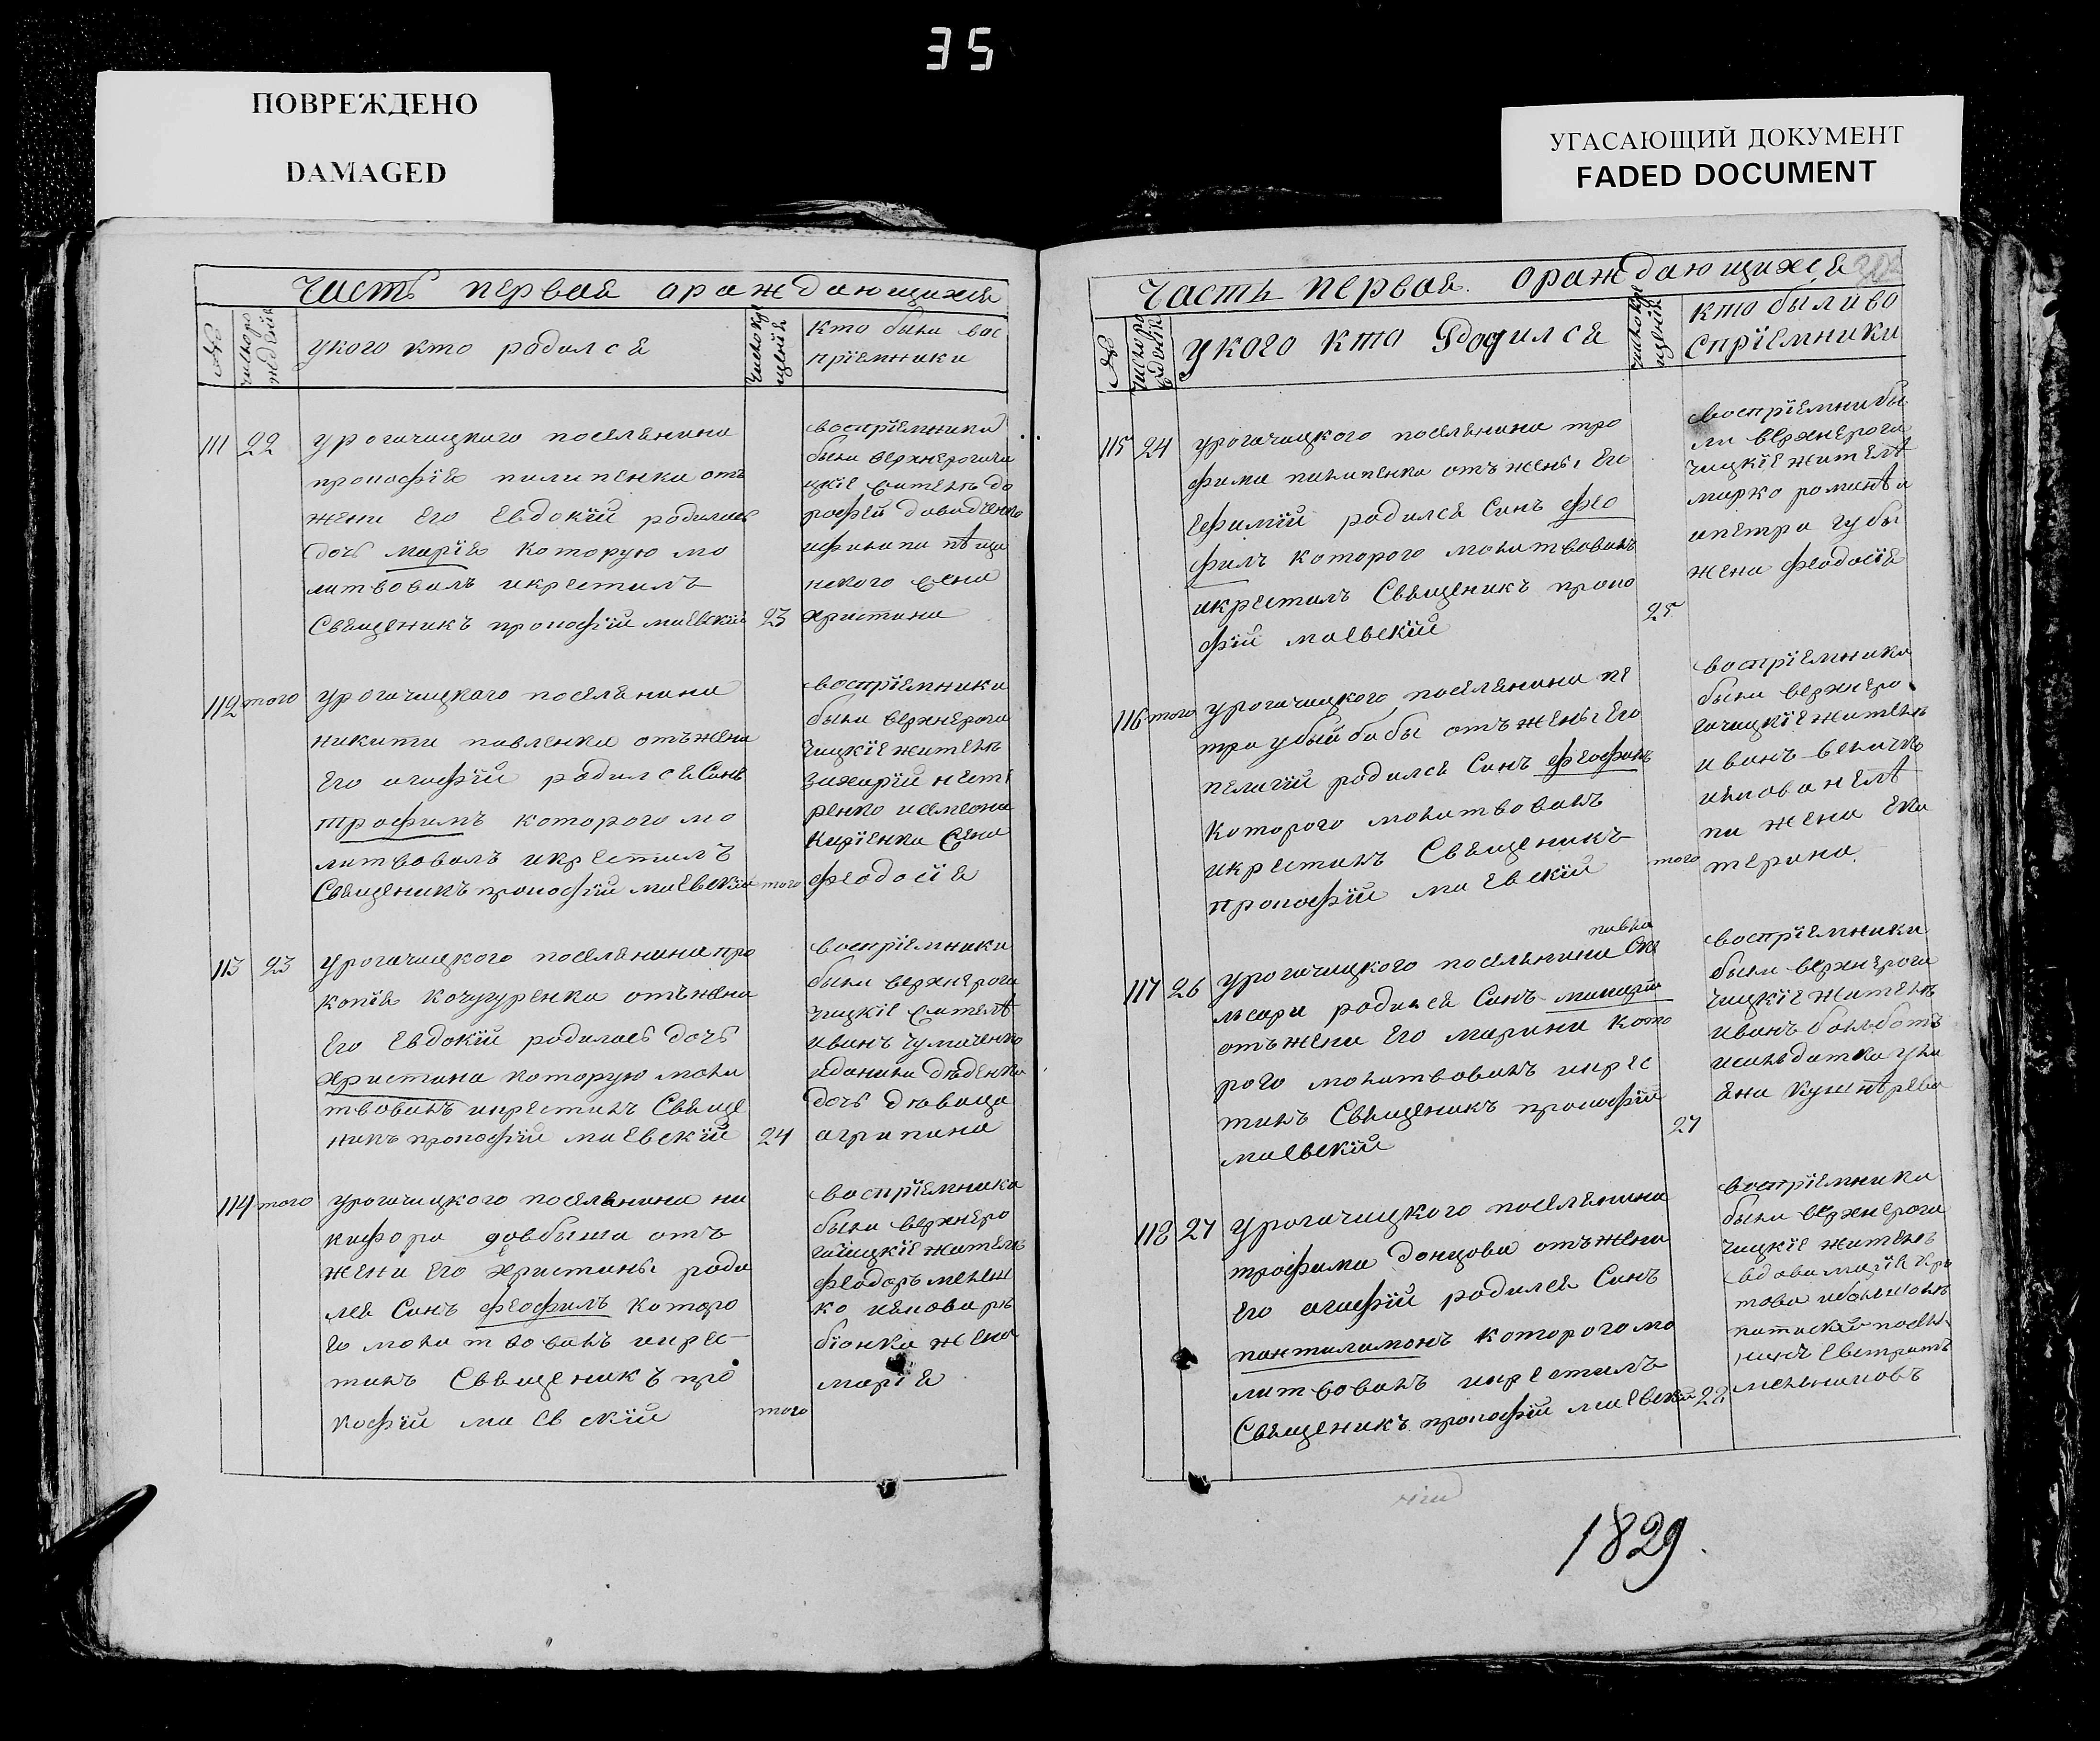 35
ПОВРЕЖДЕНО
DAMAGED
УГАСАЮЩИЙ ДОКУМЕНТ
FADED DOCUMENT
Часть первая ораждающихся
№
число ро
ждения
укого кто родился
число кре
щения
кто были вос
пріемники
111 22
урогачицкаго поселянина
прокофія пилипенка отъ
жени его Евдокіи родилась
дочь марія которую мо
литвовалъ икрестилъ
Священикъ прокофій маевскій 23
воспріемники
были верхнерогачи
цкіе жителѣ до
рофей давидченко
христина
112 того
урогачицкаго поселянина
никити павленка отъжени
его агафіи родился Синъ
трофимъ которого мо
литвовалъ икрестилъ
Священикъ прокофій маевскій того
воспріемники
были верхнерога
чицкіе жителѣ
захарій несте
ренко исемеона
кирієнка жена
феодосія
113 23
урогачицкого поселянина про
копія кочугуренка отъжени
его Евдокіи родилась дочь
христина которую моли
твовалъ икрестилъ Свяще
никъ прокофій маевскій 24
воспріемники
были верхнерога
чицкіе жителѣ
иванъ чумаченко
иданила дѣденка
дочь дѣвица
агрипина
114 того
урогачицкого поселянина ни
кифора довбиша отъ
жени его христины роди
лся Синъ феофилъ которо
го молитвовалъ икрес
тилъ Священикъ про
кофій маевскій того
воспріемники
были верхнеро
гачицкіе жителѣ
феодоръ мелеш
ко иякова ря
біонка жена
марія
Часть первая ораждающихся
№
число ро
ждения
укого кто Родился
число кре
щения
кто были во
спріемники
115 24
урогачицкого поселянина тро
фима пилипенка отъ жены его
ефиміи родился Синъ фео
филъ которого молитвовалъ
икрестилъ Священикъ проко
фій маевскій 25
воспріемники бы
ли верхнерога
чицкіе жителѣ
марко романѣ и
ипетра губы
жена феодосія
116 того
урогачицкого поселянина пе
тра убыйбабы отъ жены его
пелагіи родился Синъ феофилъ
которого молитвовалъ
икрестилъ Священикъ
прокофій маевскій того
воспріемники
были верхнеро
гачицкіе жителѣ
иванъ величко
па жена ека
терина
117 26
павла
урогачицкого поселянина Сле
Синъ макарій
отъжени его марини кото
рого молитвовалъ икрес
тилъ Священикъ прокофій
маевскій 27
воспріемники
были верхнерога
чицкіе жителѣ
иванъ болъботъ
118 27
урогачицкого поселянина
трофима донцова отъжени
его агафіи родился Синъ
пантилимонъ которого мо
литвовалъ икрестилъ
Священикъ прокофій маевскій 28
воспріемники
были верхнерога
чицкіе жителѣ
евстратъ
мельниковъ
1829.